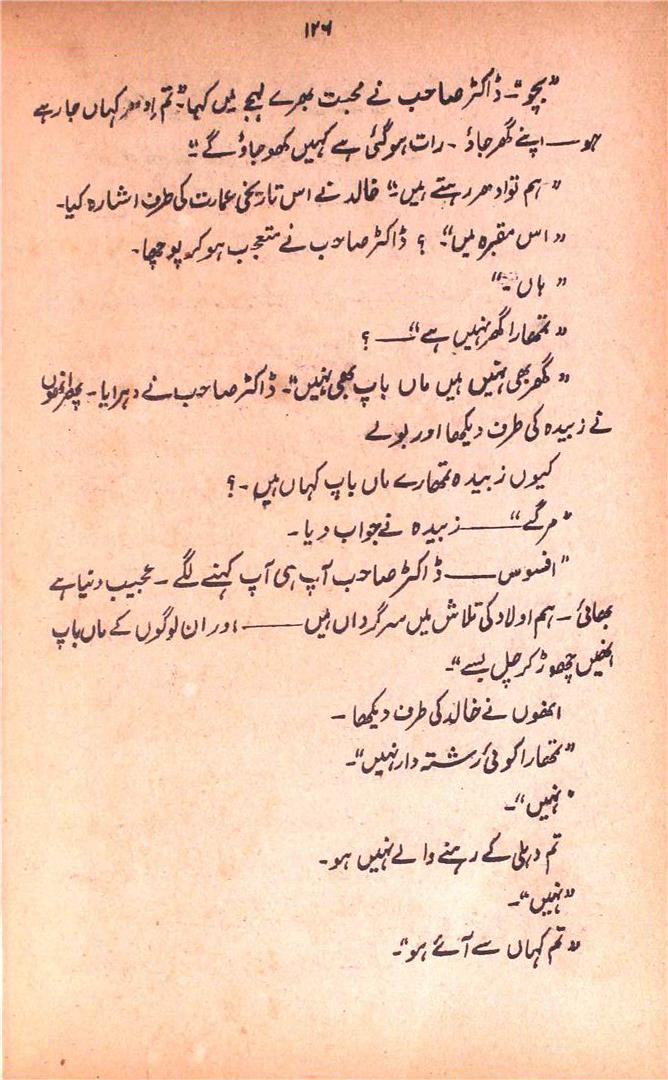 ۱۲۶
"بچو"۔ ڈاکٹر صاحب نے محبت بھرے لہجے میں کہا"۔ تم اِدھر کہاں جا رہے
ہو ــــ اپنے گھر جاؤ ۔ رات ہوگئی ہے کہیں کھو جاؤ گے"۔
"ہم تو ادھر رہتے ہیں"۔ خالد نے اس تاریخی عمارت کی طرف اشارہ کیا۔
"اس مقبرہ میں"۔ ؟ ڈاکٹر صاحب نے متعجب ہو کر پوچھا۔
"ہاں۔"
"تمھارا گھر نہیں ہے" ــــ ؟
"گھر بھی نہیں ہیں ماں باپ بھی نہیں"۔ ڈاکٹر صاحب نے دہرایا ۔ پھر انھوں
نے زبیدہ کی طرف دیکھا اور بولے
کیوں زبیدہ تمھارے ماں باپ کہاں ہیں ۔ ؟
"مر گے" ــــــ زبیدہ نے جواب دیا ۔
"افسوس ــــ ڈاکٹر صاحب آپ ہی آپ کہنے لگے ۔ عجیب دنیا ہے
بھائی ۔ ہم اولاد کی تلاش میں سرگرداں ہیں ــــــ اور ان لوگوں کے ماں باپ
انھیں چھوڑ کر چل بسے"۔
انھوں نے خالد کی طرف دیکھا ۔
"تمھارا کوئی رشتہ دار نہیں"۔
"نہیں"۔
تم دہلی کے رہنے والے نہیں ہو ۔
"نہیں"۔
"تم کہاں سے آئے ہو"۔